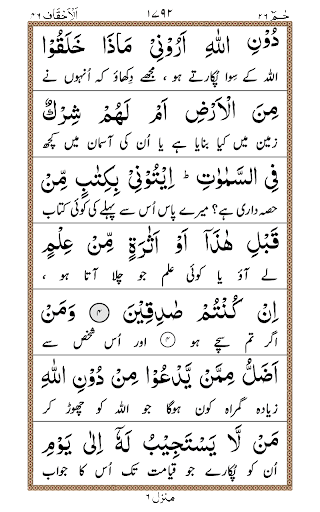 حٰمٓ ٢٦ ١٧٩٢ اَلْاَحْقَاف ٤٦
دُوْنِ اللّٰهِ اَرُوْنِيْ مَاذَا خَلَقُوْا
اللہ کے سوا پُکارتے ہو ، مجھے دِکھاؤ کہ اُنہوں نے
مِنَ الْاَرْضِ اَمْ لَهُمْ شِرْكٌ
زمین میں کیا بنایا ہے یا اُن کی آسمان میں کچھ
فِي السَّمٰوٰتِ ؕ اِيْتُوْنِيْ بِكِتٰبٍ مِّنْ
حصہ داری ہے؟ میرے پاس اُس سے پہلے کی کوئی کتاب
قَبْلِ هٰذَاۤ اَوْ اَثٰرَةٍ مِّنْ عِلْمٍ
لے آؤ یا کوئی علم جو چلا آتا ہو ،
اِنْ كُنْتُمْ صٰدِقِيْنَ ۴ وَمَنْ
اگر تم سچے ہو ۴ اور اُس شخص سے
اَضَلُّ مِمَّنْ يَّدْعُوْا مِنْ دُوْنِ اللّٰهِ
زیادہ گمراہ کون ہوگا جو اللہ کو چھوڑ کر
مَنْ لَّا يَسْتَجِيْبُ لَهٗۤ اِلٰى يَوْمِ
اُن کو پُکارے جو قیامت تک اُس کا جواب
منزل ٦